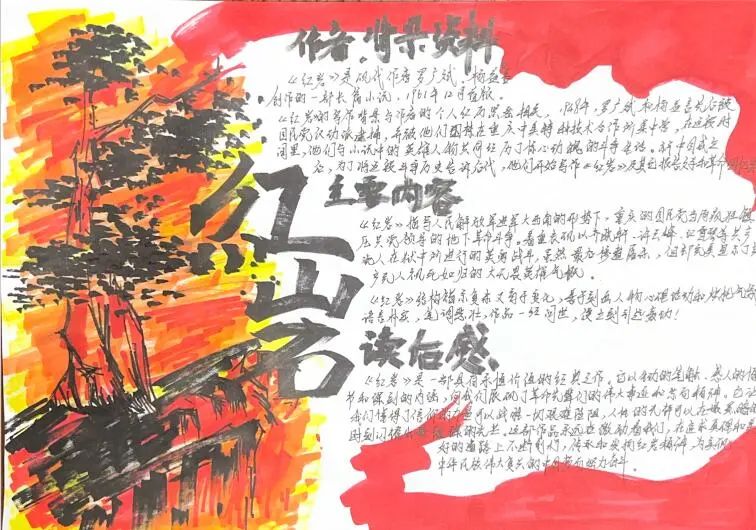 红岩
作者.背景资料
《红岩》是现代作者罗广斌、杨益言
创作的一部长篇小说，1961年12月首版。
《红岩》的写作背景与作者的个人经历紧密相关，1948年，罗广斌和杨益言先后被
国民党反动派逮捕，并被他们囚禁在重庆中美特种技术合作所集中营，在这段时
间里，他们与小说中的英雄人物共同经历了惊心动魄的斗争生活。新中国成立
后，为了将这段斗争历史告诉后代，他们开始写作《红岩》及其
主要内容
《红岩》描写人民解放军进军大西南的形势下，重庆的国民党当局疯狂镇
压共党领导的地下革命斗争。着重表现以齐晓轩、许云峰、江雪琴等共产
党人在狱中所进行的英勇战斗，虽然最后惨遭屠杀，但却充分显示了共
产党人视死如归的大无畏英雄气概。
《红岩》结构错综复杂又富于变化，善于刻画人物心理活动和烘托气氛
语言朴实，笔调悲壮，作品一经问世，便立刻引起轰动！
读后感
《红岩》是一部具有永恒价值的经典之作。它以生动的笔触、感人的情
节和深刻的内涵，向我们展现了革命先辈们的伟大事迹和崇高精神。它让
我们懂得了信仰的力量可以战胜一切艰难险阻，人性的光辉可以在最黑暗的
时刻闪烁出最耀眼的光芒。这部作品永远在激励着我们，在追求真理和美
好的道路上不断前行，传承和发扬红岩精神，为实现
中华民族伟大复兴的中国梦而努力奋斗。